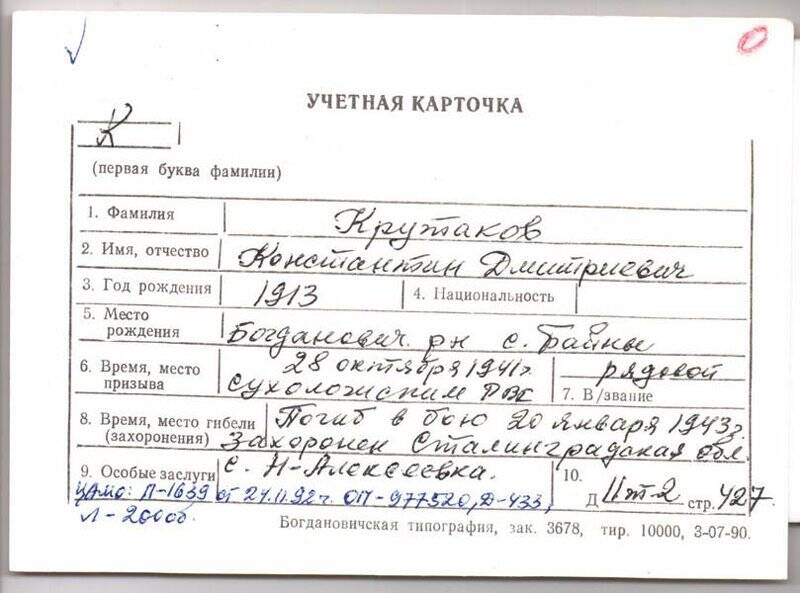 УЧЕТНАЯ КАРТОЧКА
К
(первая буква фамилии)
1. Фамилия Крутаков
2. Имя, отчество Константин Дмитриевич
3. Год рождения 1913 4. Национальность
5. Место рождения Богданович. рн с. Байны
6. Время, место призыва 28 октября 1941г. Сухоложским РВК
7. В/звание рядовой
8. Время, место гибели (захоронения) Погиб в бою 20 января 1943г.
Захоронен Сталинградская обл.
с. Н-Алексеевка.
9. Особые заслуги
ЦАМО: П-1639 от 24.11.92г. ОП-977520, Д-433,
Л-200об.
10. Д II т-2 стр. 427.
Богдановичская типография, зак. 3678, тир. 10000, 3-07-90.